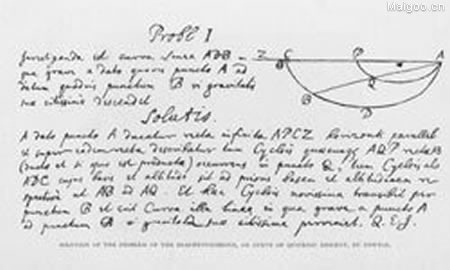 Maigoo.cn
Probl I
Investiganda est curva linea ADB in
qua grave a dato quovis puncto A ad
datum quodvis punctum B vi gravitatis
suæ citissime descendet
Z C P A
B Q
B D
Solutio.
A dato puncto A ducatur recta infinita APCZ horizonti parallela
et super eadem recta describatur tum Cyclois quæcunque AQP rectæ AB
(ductæ et si opus est productæ) occurrens in puncto Q, tum Cyclois alia
ADC cujus basis et altitudo sit ad prioris basem et altitudinem re-
spective ut AB ad AQ. Et hæc Cyclois novissima transibit per
punctum B et erit Curva illa linea in qua grave a puncto A
ad punctum B vi gravitatis suæ citissime perveniet. Q. E. I.
SOLUTION OF THE PROBLEM OF THE BRACHISTOCHRONE, OR CURVE OF QUICKEST DESCENT, BY NEWTON.